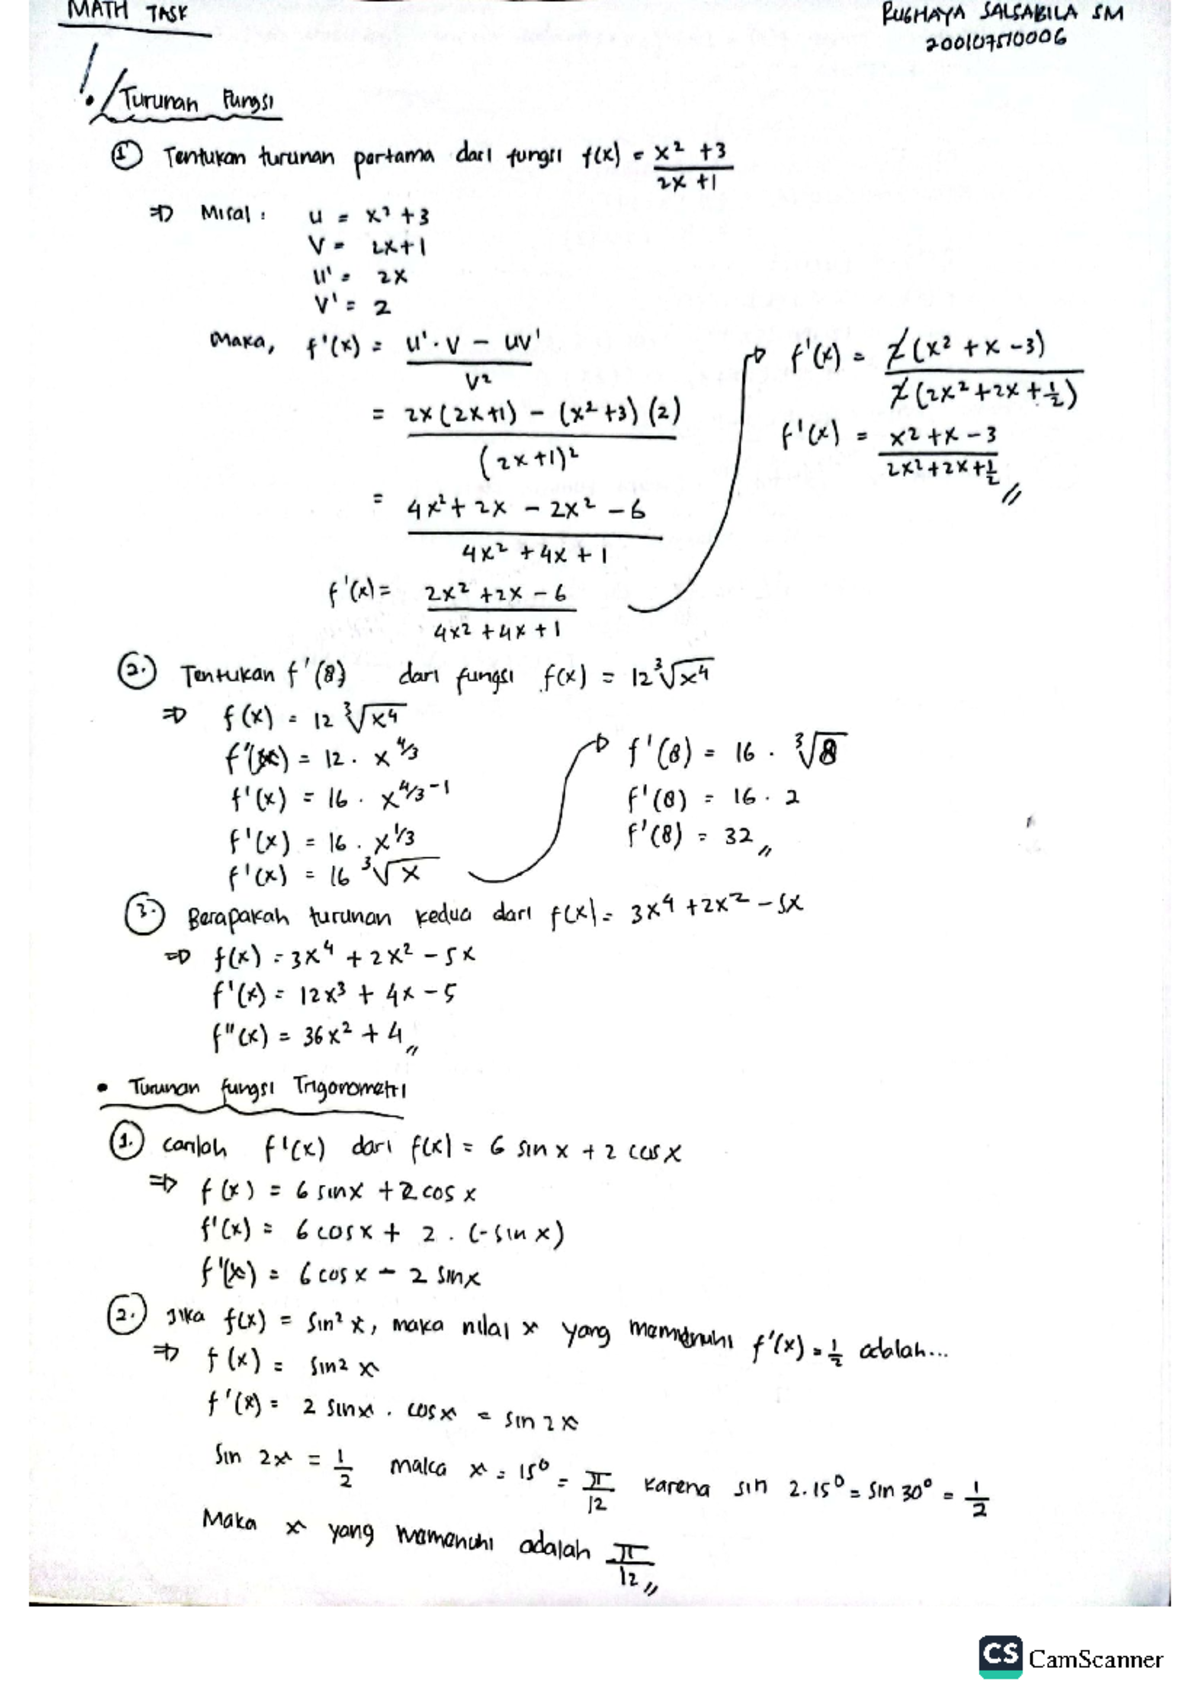 MATH TASK
RUGHAYA SALSABILA SM
200107510006
! / Turunan Fungsi
① Tentukan turunan pertama dari fungsi f(x) = (x² + 3)/(2x + 1)
⇒ Misal : u = x² + 3
V = 2x+1
u' = 2x
V' = 2
Maka, f'(x) = (u'·V − uv')/V²
= (2x(2x+1) − (x²+3)(2))/(2x+1)²
= (4x² + 2x − 2x² − 6)/(4x² + 4x + 1)
f'(x) = (2x² + 2x − 6)/(4x² + 4x + 1)
f'(x) = 2(x² + x − 3)/2(2x² + 2x + 1/2)
f'(x) = (x² + x − 3)/(2x² + 2x + 1/2) //
②. Tentukan f'(8) dari fungsi f(x) = 12 ∛x⁴
⇒ f(x) = 12 ∛x⁴
f'(x) = 12 . x^4/3
f'(x) = 16 . x^4/3-1
f'(x) = 16 . x^1/3
f'(x) = 16 ∛x
f'(8) = 16 . ∛8
f'(8) = 16 . 2
f'(8) = 32 //
③. Berapakah turunan kedua dari f(x) = 3x⁴ + 2x² − 5x
⇒ f(x) = 3x⁴ + 2x² − 5x
f'(x) = 12x³ + 4x − 5
f"(x) = 36x² + 4 //
• Turunan fungsi Trigonometri
①. Carilah f'(x) dari f(x) = 6 sin x + 2 cos x
⇒ f(x) = 6 sinx + 2 cos x
f'(x) = 6 cosx + 2 . (-sin x)
f'(x) = 6 cos x − 2 sinx
②. Jika f(x) = sin² x, maka nilai x yang memenuhi f'(x) = 1/2 adalah...
⇒ f(x) = sin² x
f'(x) = 2 sinx . cosx = sin 2x
Sin 2x = 1/2 maka x = 15° = π/12 karena sin 2.15° = sin 30° = 1/2
Maka x yang memenuhi adalah π/12 //
CS CamScanner